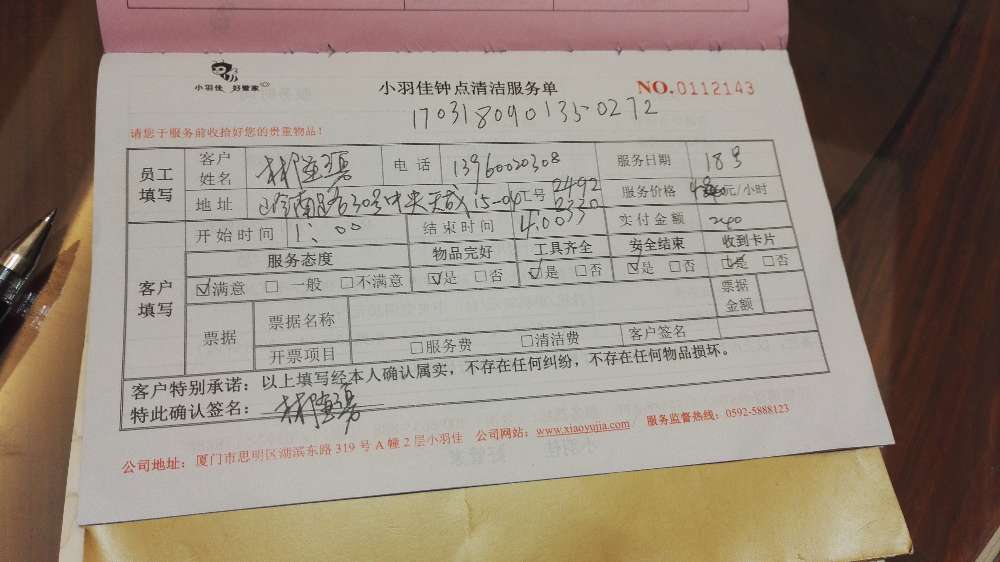 小羽佳 好管家
小羽佳钟点清洁服务单
NO.0112143
170318090135-0272
请您于服务前收拾好您的贵重物品！
员工填写
客户姓名 林 电话 13960020308 服务日期 18号
地址 南路30号中央天成15-04 工号 2492 服务价格 元/小时
客户填写
开始时间 1:00 结束时间 4:00 实付金额 240
服务态度 物品完好 工具齐全 安全结束 收到卡片
☑满意 □一般 □不满意 ☑是 □否 ☑是 □否 ☑是 □否 ☑是 □否
票据 票据名称 票据金额
开票项目 □服务费 □清洁费 客户签名
客户特别承诺：以上填写经本人确认属实，不存在任何纠纷，不存在任何物品损坏。
特此确认签名： 林
公司地址：厦门市思明区湖滨东路 319 号 A 幢 2 层小羽佳 公司网站：www.xiaoyujia.com / 服务监督热线：0592-5888123